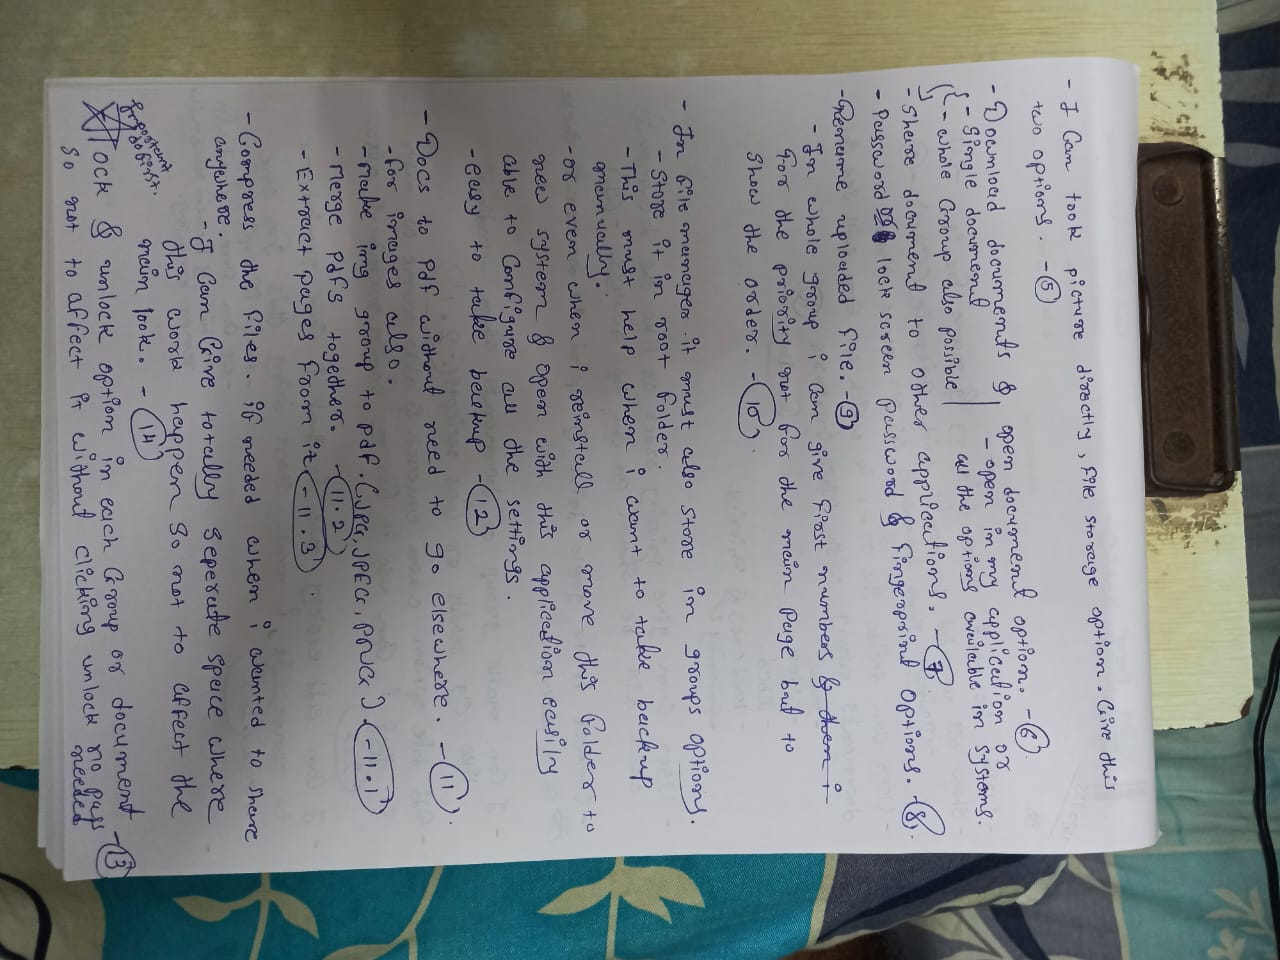 - I Can took picture directly, File storage option. Give this
two options. - 5
- Download documents & open document option. - 6
- Single document - open in my application or
- whole Group also possible all the options available in systems.
- Share document to other applications. - 7
- Password or lock screen password & fingerprint options. - 8
- Rename uploaded file. - 9
- In whole group i can give first numbers & then i
for the priority not for the main page but to
show the order. - 10
- In file manager it must also store in groups options.
- Store it in root folder.
- This must help when i want to take backup
manually.
- or even when i reinstall or move this folder to
new system & open with this application easily
able to Configure all the settings.
- easy to take backup - 12
- Docs to Pdf without need to go elsewhere. - 11
- for images also.
- make img group to pdf. (JPG, JPEG, PNG). - 11.1
- Merge Pdfs together. - 11.2
- Extract pages from it - 11.3
- Compress the files. if needed when i wanted to share
anywhere.
- I Can Give totally Seperate space where
this work happen So not to affect the
main look. - 14
Important
do first.
lock & unlock option in each Group or document - 13
So not to affect it without clicking unlock no pass
needed